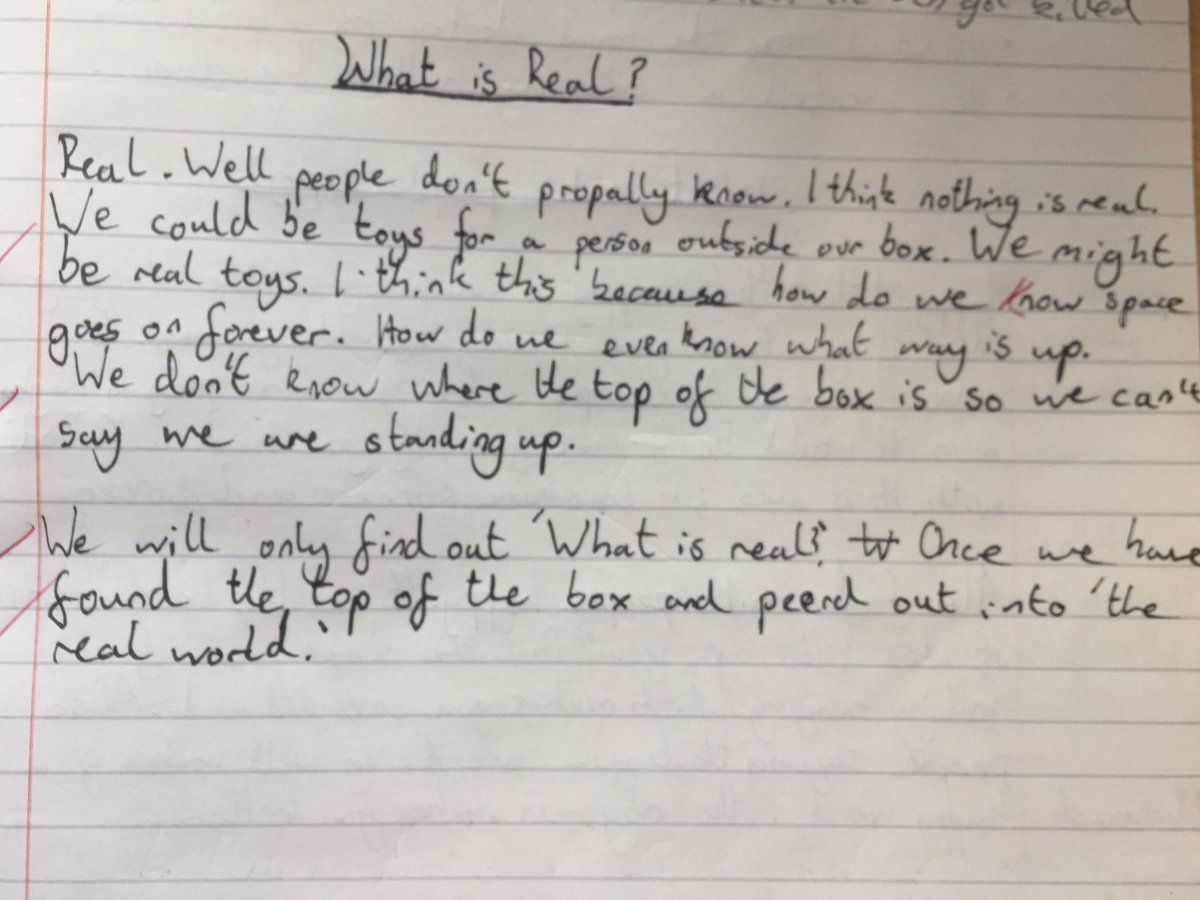 got killed
What is Real?
Real. Well people don't propally know. I think nothing is real.
We could be toys for a person outside our box. We might
be real toys. I think this because how do we know space
goes on forever. How do we even know what way is up.
We don't know where the top of the box is so we can't
say we are standing up.
We will only find out 'What is real?' Once we have
found the top of the box and peerd out into 'the
real world.'